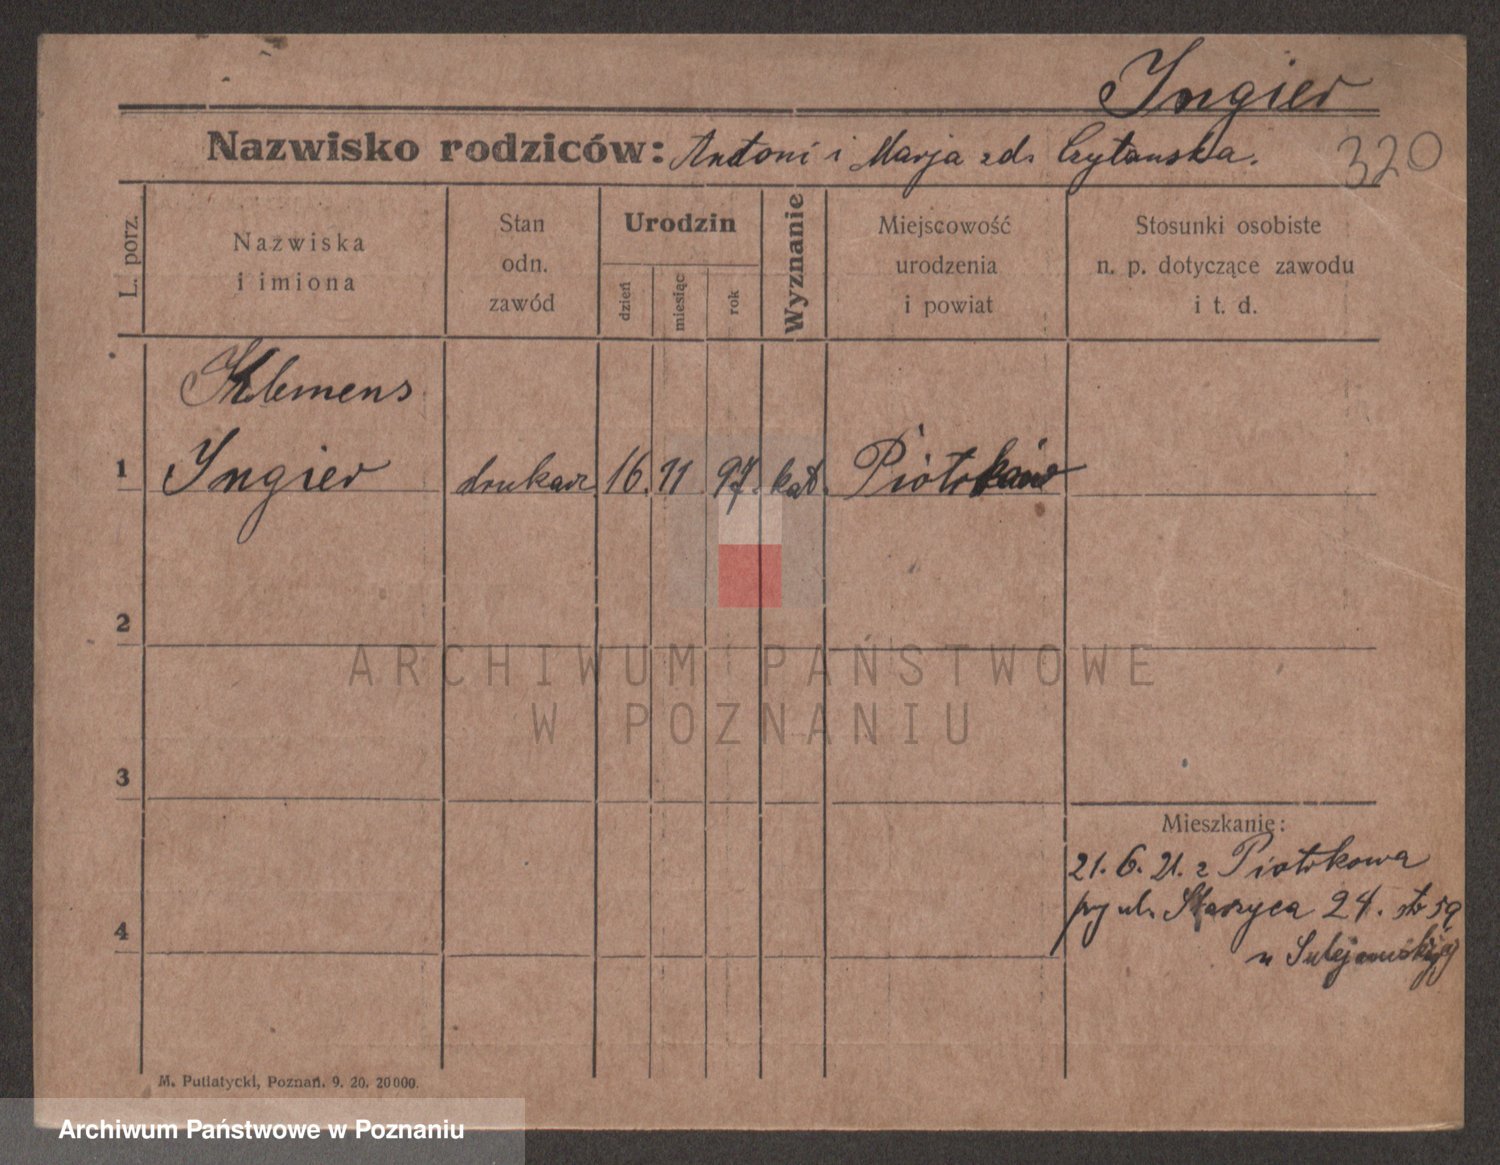 Ingier
Nazwisko rodziców: Antoni i Marja zd. Czytańska.
320
L. porz.
Nazwiska
i imiona
Stan
odn.
zawód
Urodzin
dzień
miesiąc
rok
Wyznanie
Miejscowość
urodzenia
i powiat
Stosunki osobiste
n. p. dotyczące zawodu
i t. d.
Klemens
1 Ingier drukarz 16. 11 97. kat. Piotrków
2
3
4
Mieszkanie:
21. 6. 21. z Piotrkowa
przy ul. Staszyca 24. str 59
u Sulejewskiej
M. Putiatycki, Poznań. 9. 20. 20000.
ARCHIWUM PAŃSTWOWE
W POZNANIU
Archiwum Państwowe w Poznaniu